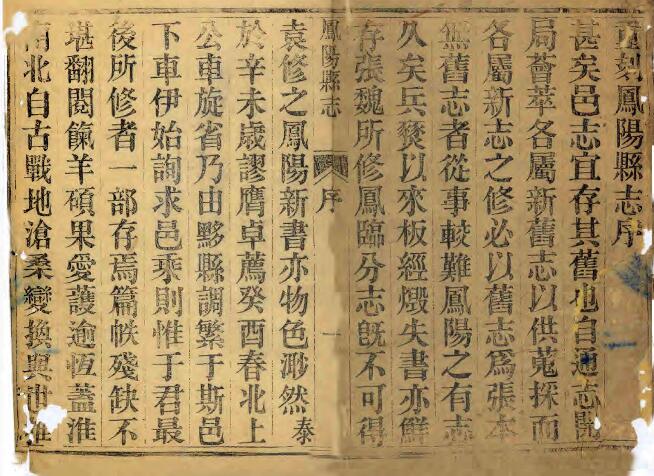 重刻鳳陽縣志序
甚矣邑志宜存其舊也自通志開
局薈萃各屬新舊志以供蒐採而
各屬新志之修必以舊志爲張本
無舊志者從事較難鳳陽之有志
久矣兵燹以來板經燬失書亦鮮
存張魏所修鳳臨分志旣不可得
鳳陽縣志 序 一
袁修之鳳陽新書亦物色渺然泰
於辛未歲謬膺卓薦癸酉春北上
公車旋省乃由黟縣調繁于斯邑
下車伊始詢求邑乘則惟于君最
後所修者一部存焉篇帙殘缺不
堪翻閱餼羊碩果愛護逾恆蓋淮
南北自古戰地滄桑變換與他